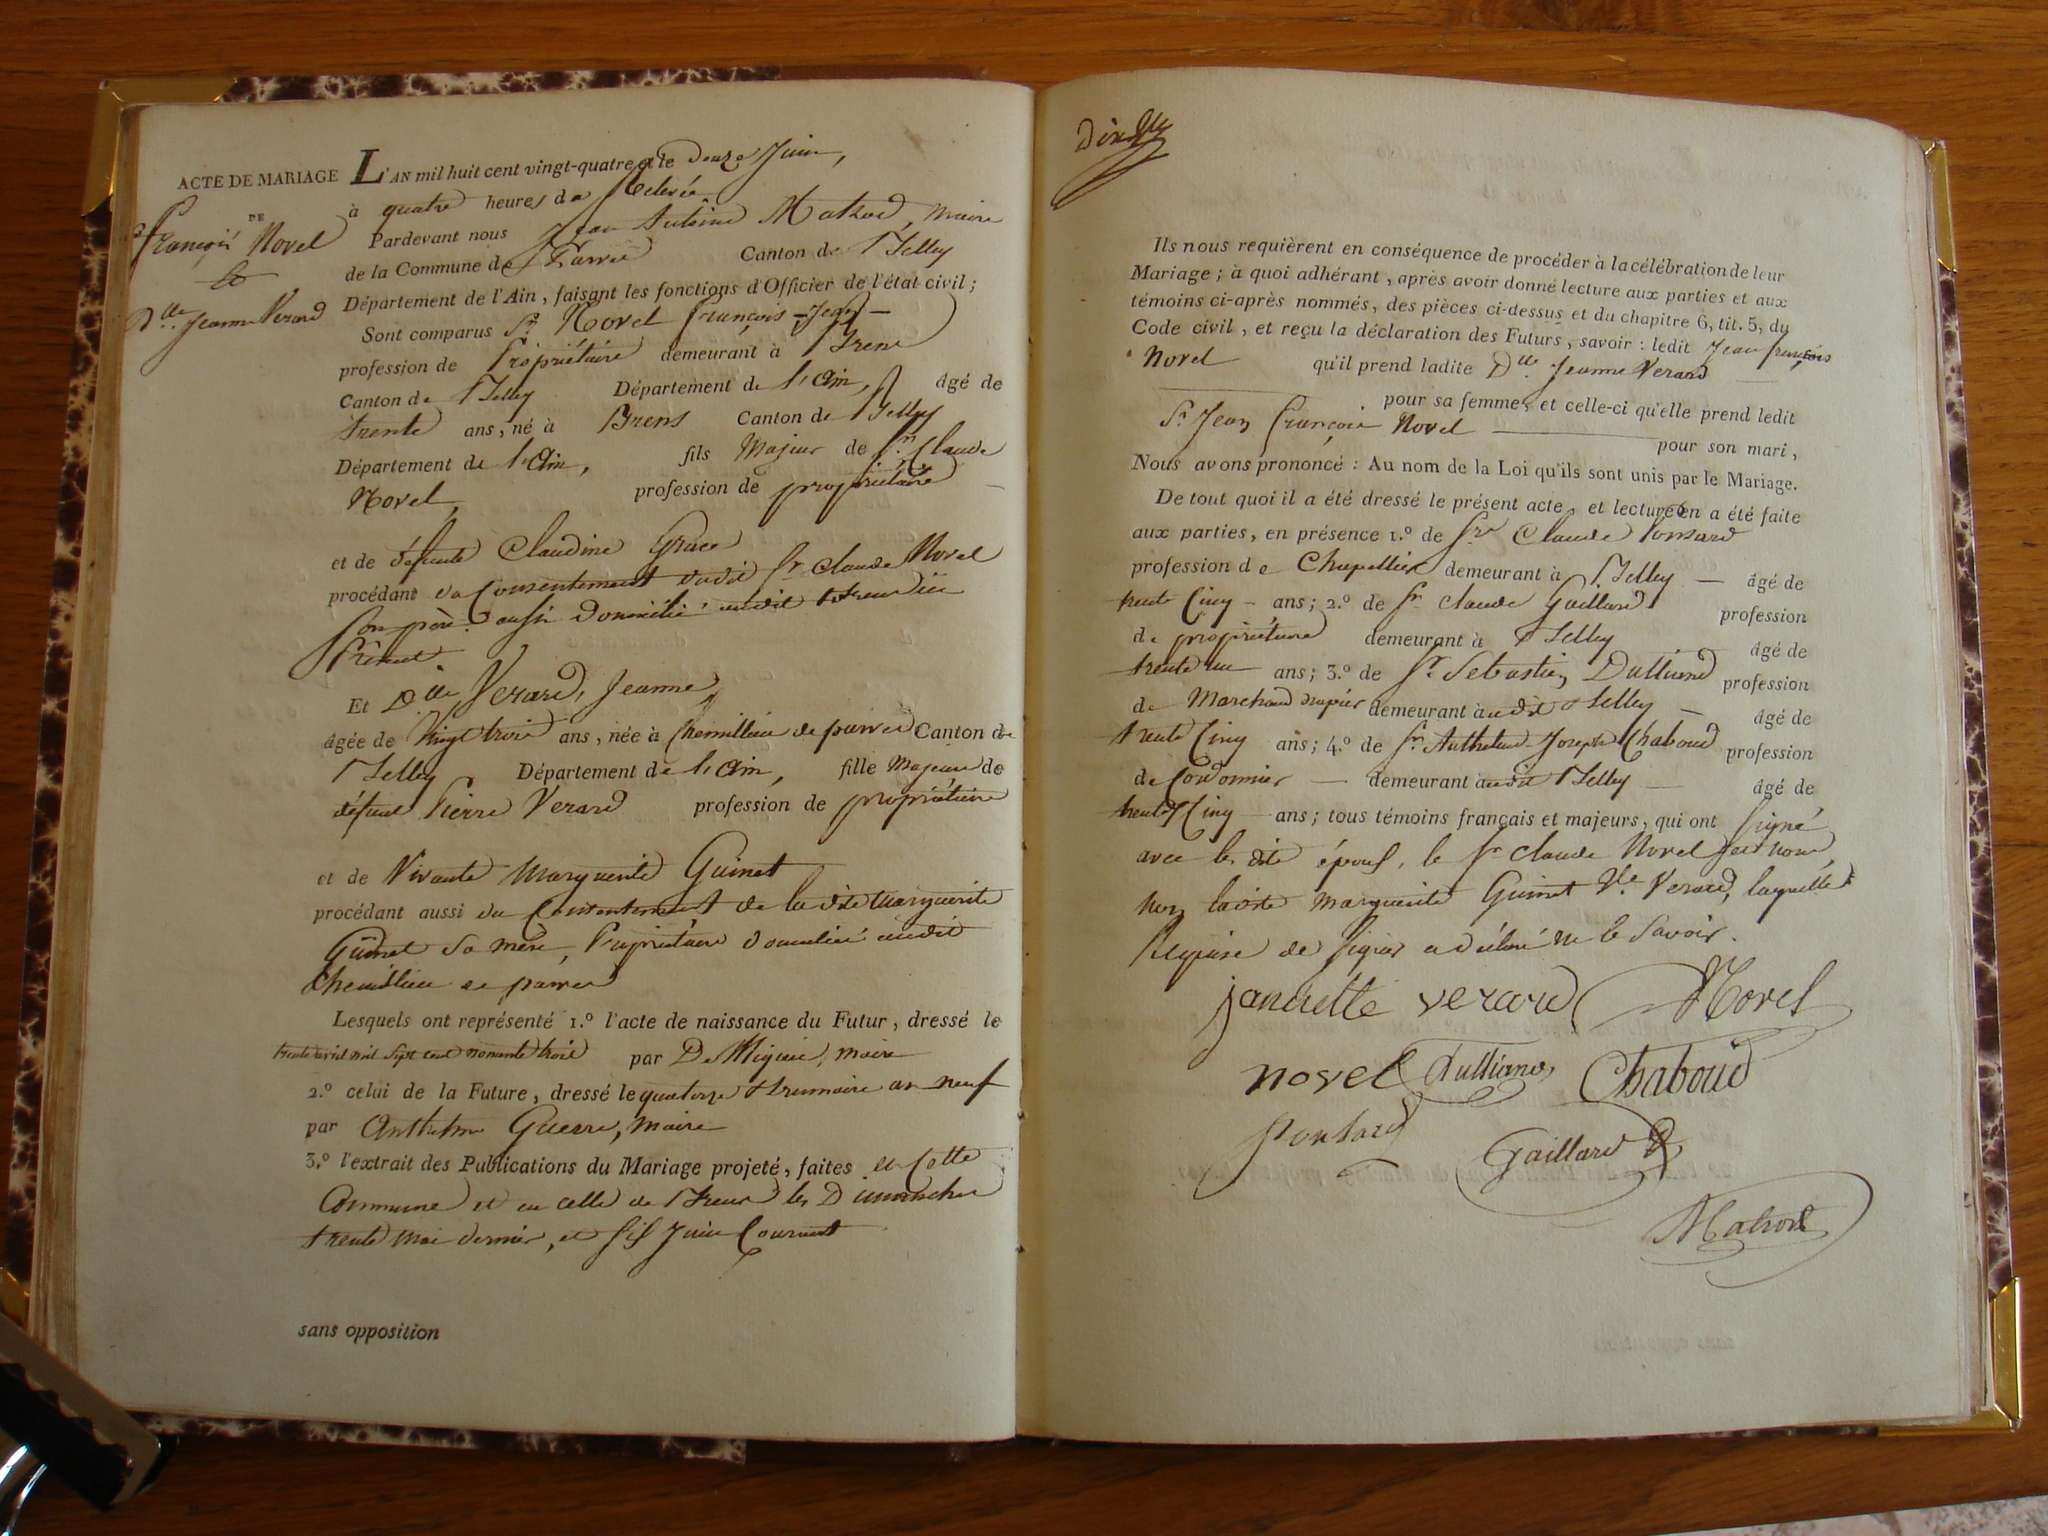 ACTE DE MARIAGE
DE
françois Novel
et
Dlle Jeanne Verard
L'AN mil huit cent vingt-quatre et le douze Juin,
à quatre heures de Relevée
Pardevant nous Jean Antoine maire
de la Commune de Parves Canton de Belley
Département de l'Ain, faisant les fonctions d'Officier de l'état civil;
Sont comparus Sr. Novel françois-Jean-
profession de Propriétaire demeurant à Brens
Canton de Belley Département de l'Ain, âgé de
trente ans, né à Brens Canton de Belley
Département de l'Ain, fils Majeur de Sr. Claude
Novel, profession de propriétaire
et de défunte Claudine Grace
procédant du Consentement dudit Sr Claude Novel
son père aussi Domicilié audit Brens ici
Présent
Et Dlle Verard, Jeanne,
âgée de Vingt trois ans, née à Chemillieu de parves Canton de
Belley Département de l'Ain, fille Majeure de
défunt Pierre Verard profession de propriétaire
et de Vivante Marguerite Guinet
procédant aussi du Consentement de la dite Marguerite
Guinet sa mère, Propriétaire domiciliée audit
Chemillieu de parves
Lesquels ont représenté 1.º l'acte de naissance du Futur, dressé le
trente avril mil sept cent nonante trois par De Migieu, maire
2.º celui de la Future, dressé le quatorze Brumaire an neuf
par Anthelme Guerre, maire
3.º l'extrait des Publications du Mariage projeté, faites en Cette
Commune et en celle de Brens les Dimanches
trente mai dernier, et six Juin Courant
sans opposition
Ils nous requièrent en conséquence de procéder à la célébration de leur
Mariage; à quoi adhérant, après avoir donné lecture aux parties et aux
témoins ci-après nommés, des pièces ci-dessus et du chapitre 6, tit. 5, du
Code civil, et reçu la déclaration des Futurs, savoir: ledit Jean françois
Novel qu'il prend ladite Dlle Jeanne Verard
pour sa femme, et celle-ci qu'elle prend ledit
Sr. Jean françois Novel pour son mari,
Nous avons prononcé: Au nom de la Loi qu'ils sont unis par le Mariage.
De tout quoi il a été dressé le présent acte, et lecture en a été faite
aux parties, en présence 1.º de Sr Claude Ponsard
profession de Chapellier demeurant à Belley — âgé de
trente Cinq - ans; 2.º de Sr Claude Gaillard profession
de propriétaire demeurant à Belley âgé de
trente un ans; 3.º de Sr Sebastien Dulliand profession
de Marchand drapier demeurant audit Belley — âgé de
trente Cinq ans; 4.º de Sr Anthelme Joseph Chaboud profession
de Cordonnier — demeurant audit Belley — âgé de
trente Cinq ans; tous témoins français et majeurs, qui ont signé
avec les dits époux, le Sr Claude Novel et nous,
non ladite Marguerite Guinet Ve. Verard, laquelle
Requise de signer a déclaré ne le savoir.
janette verard Novel
novel Dulliand Chaboud
Ponsard Gaillard